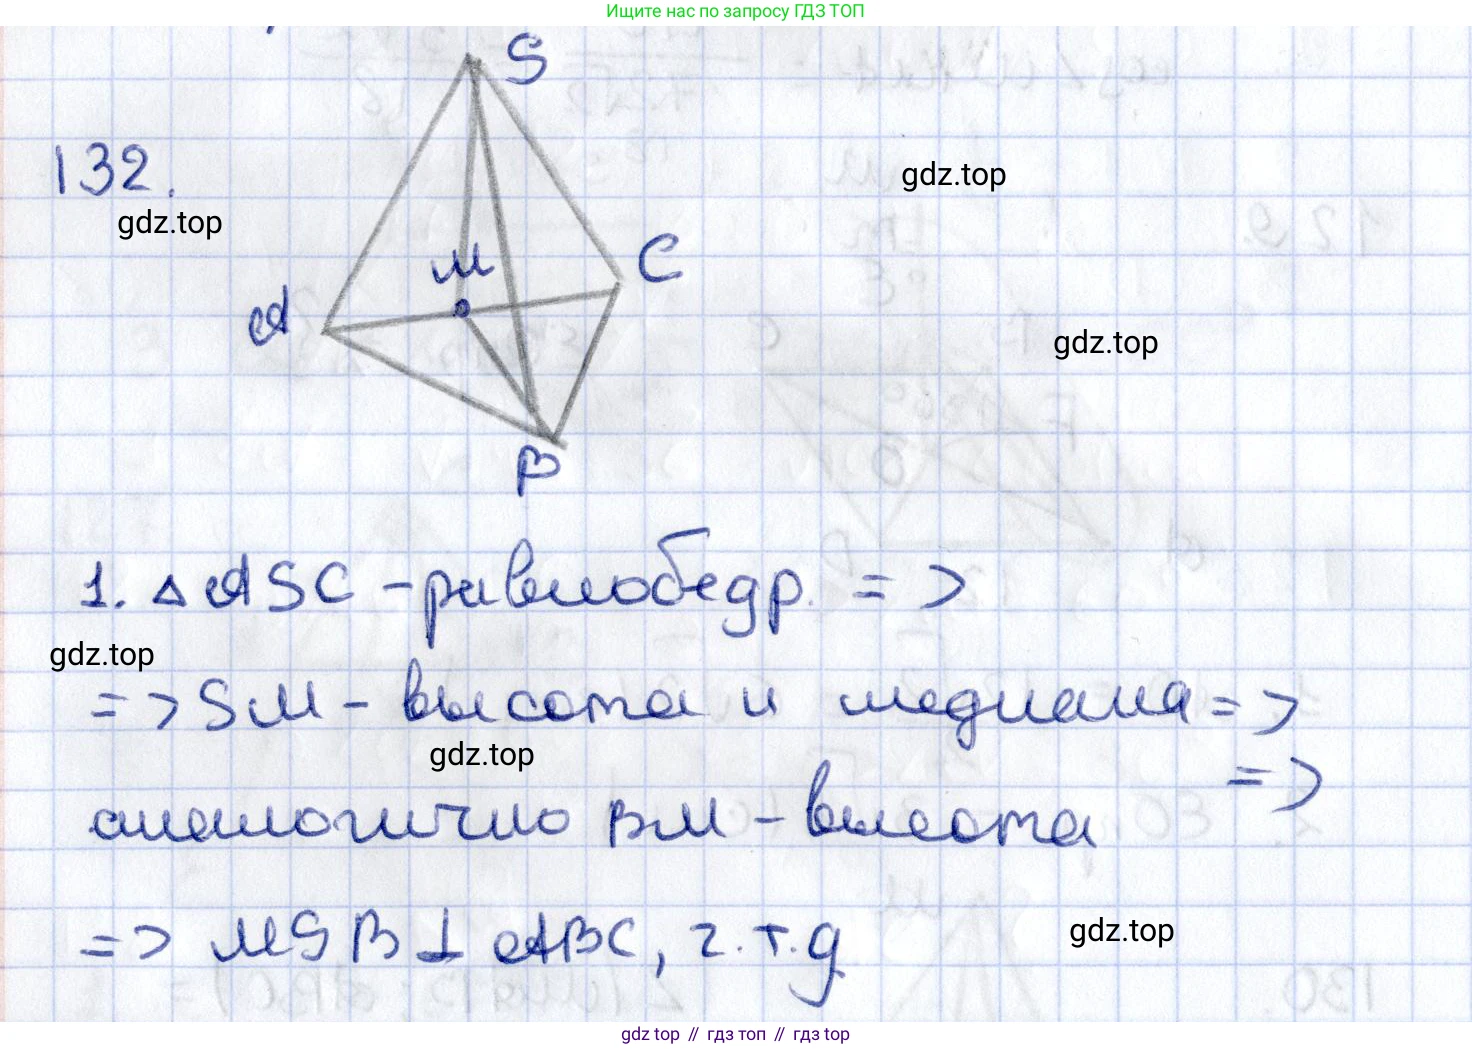 Ищите нас по запросу ГДЗ ТОП
S
132.
gdz.top
gdz.top
M
C
A
gdz.top
B
1. △ ASC - равнобедр. =>
gdz.top
=> SM - высота и медиана =>
gdz.top
=>
аналогично BM - высота
=> MSB ⊥ ABC, ч.т.д
gdz.top
gdz.top // гдз топ // гдз top